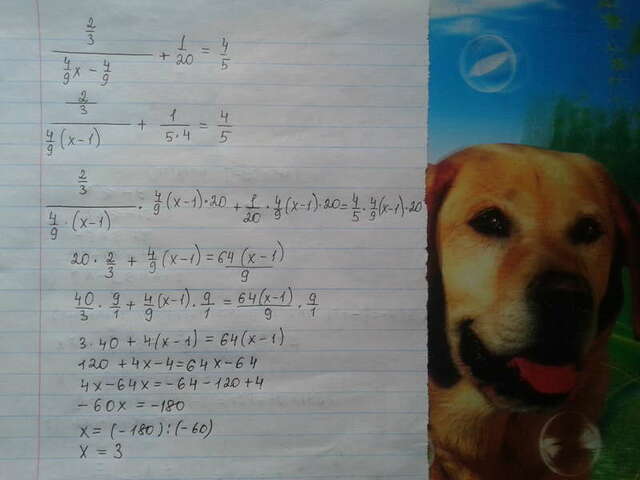 (2/3)/(4/9x - 4/9) + 1/20 = 4/5
(2/3)/(4/9(x-1)) + 1/(5·4) = 4/5
(2/3)/(4/9·(x-1)) · 4/9(x-1)·20 + 1/20·4/9(x-1)·20 = 4/5·4/9(x-1)·20
20·2/3 + 4/9(x-1) = 64(x-1)/9
40/3·9/1 + 4/9(x-1)·9/1 = 64(x-1)/9·9/1
3·40 + 4(x-1) = 64(x-1)
120 + 4x - 4 = 64x - 64
4x - 64x = -64 - 120 + 4
-60x = -180
x = (-180):(-60)
x = 3